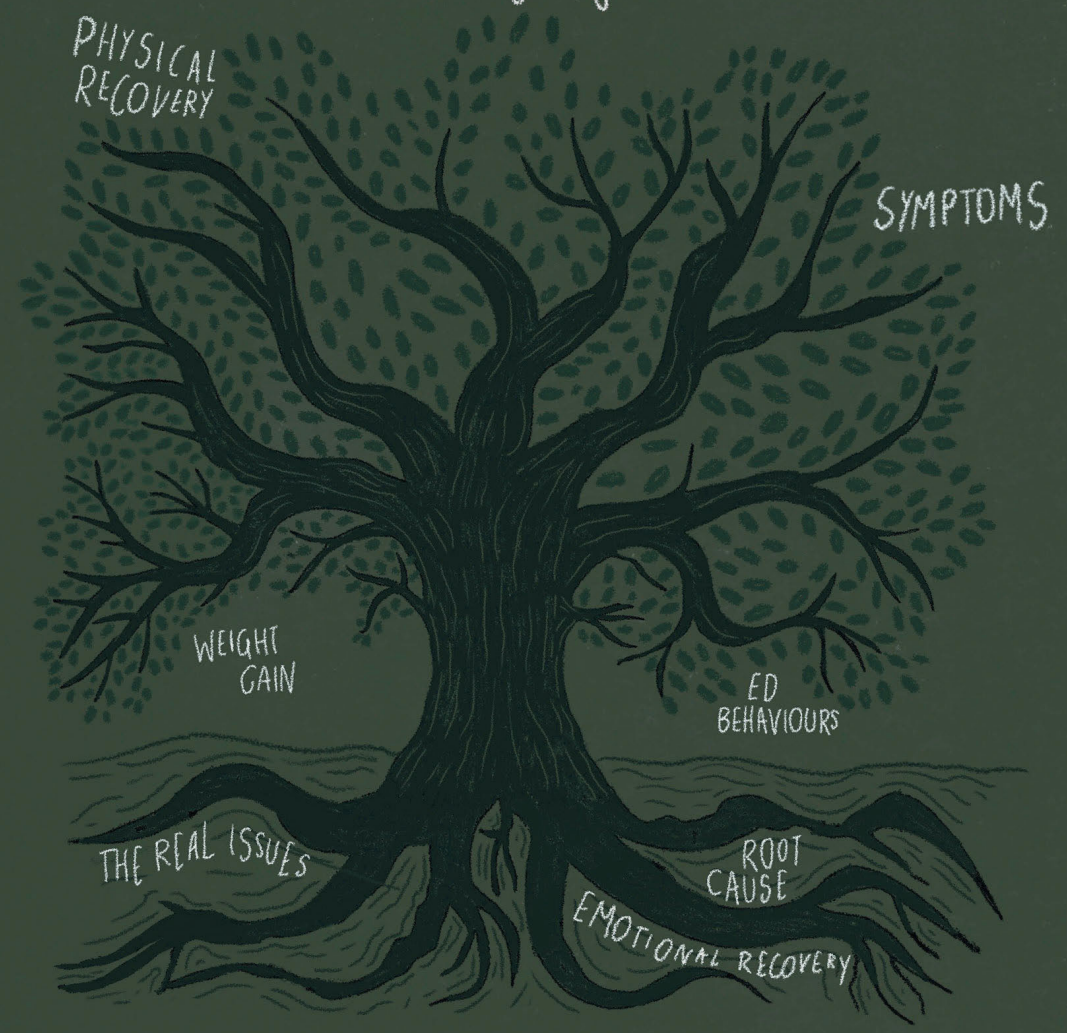 PHYSICAL
RECOVERY
SYMPTOMS
WEIGHT
GAIN
ED
BEHAVIOURS
THE REAL ISSUES
ROOT
CAUSE
EMOTIONAL RECOVERY